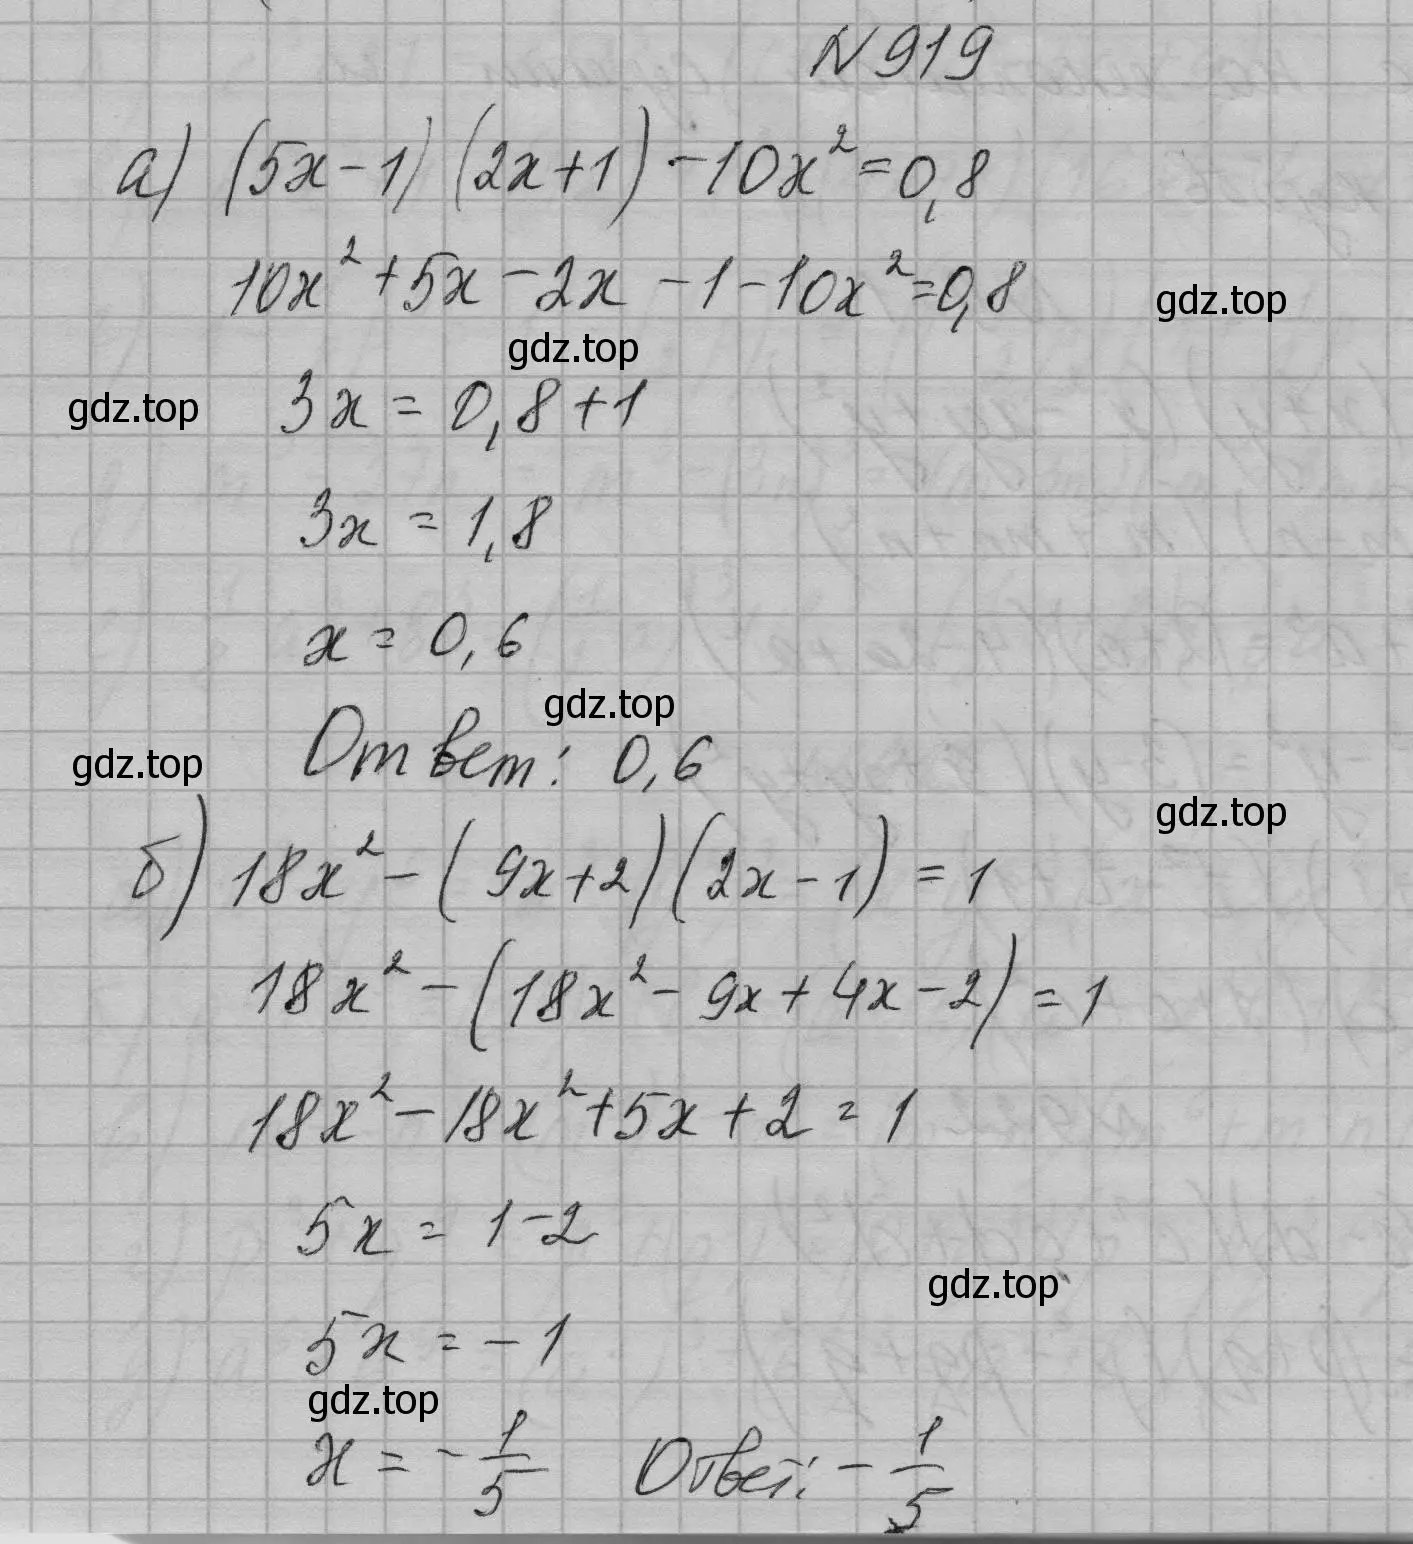 N 919
а) (5x-1) (2x+1) -10x² = 0,8
10x² + 5x - 2x - 1 - 10x² = 0,8
gdz.top
gdz.top
gdz.top
3x = 0,8 + 1
3x = 1,8
x = 0,6
gdz.top
Ответ: 0,6
gdz.top
gdz.top
б) 18x² - (9x+2) (2x-1) = 1
18x² - (18x² - 9x + 4x - 2) = 1
18x² - 18x² + 5x + 2 = 1
5x = 1 - 2
gdz.top
5x = - 1
gdz.top
x = - 1/5 Ответ: - 1/5